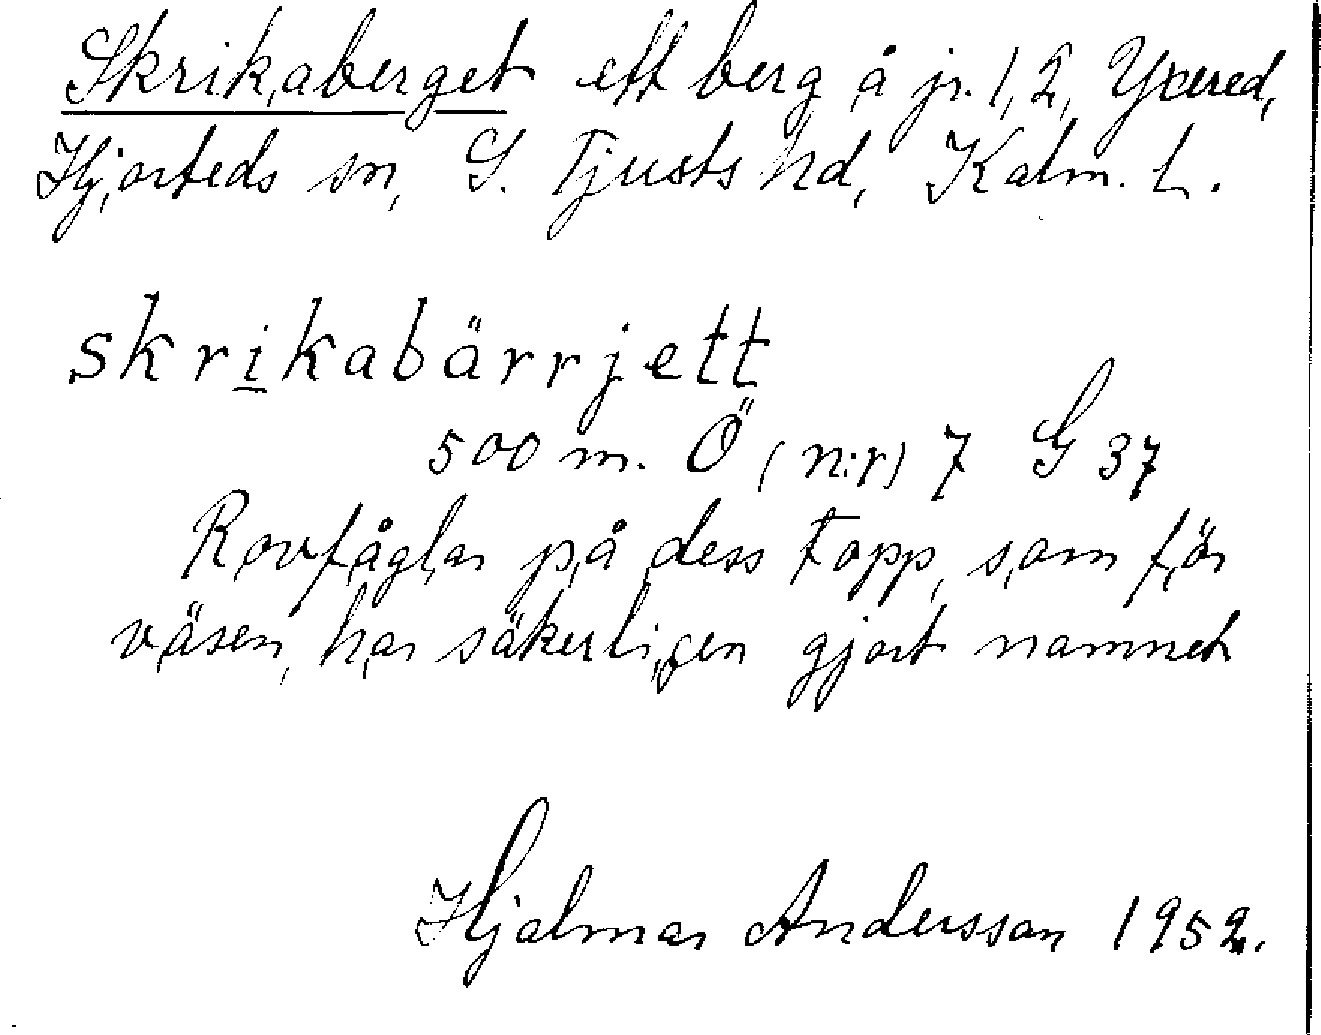 Skrikaberget ett berg å jr. 1, 2, Yxered,
Hjorteds sn, S. Tjusts hd, Kalm. L.
skrikabärrjett
500 m. Ö (n:r) 7 G 37
Rovfåglar på dess topp, som för
väsen, har säkerligen gjort namnet
Hjalmar Andersson 1952.